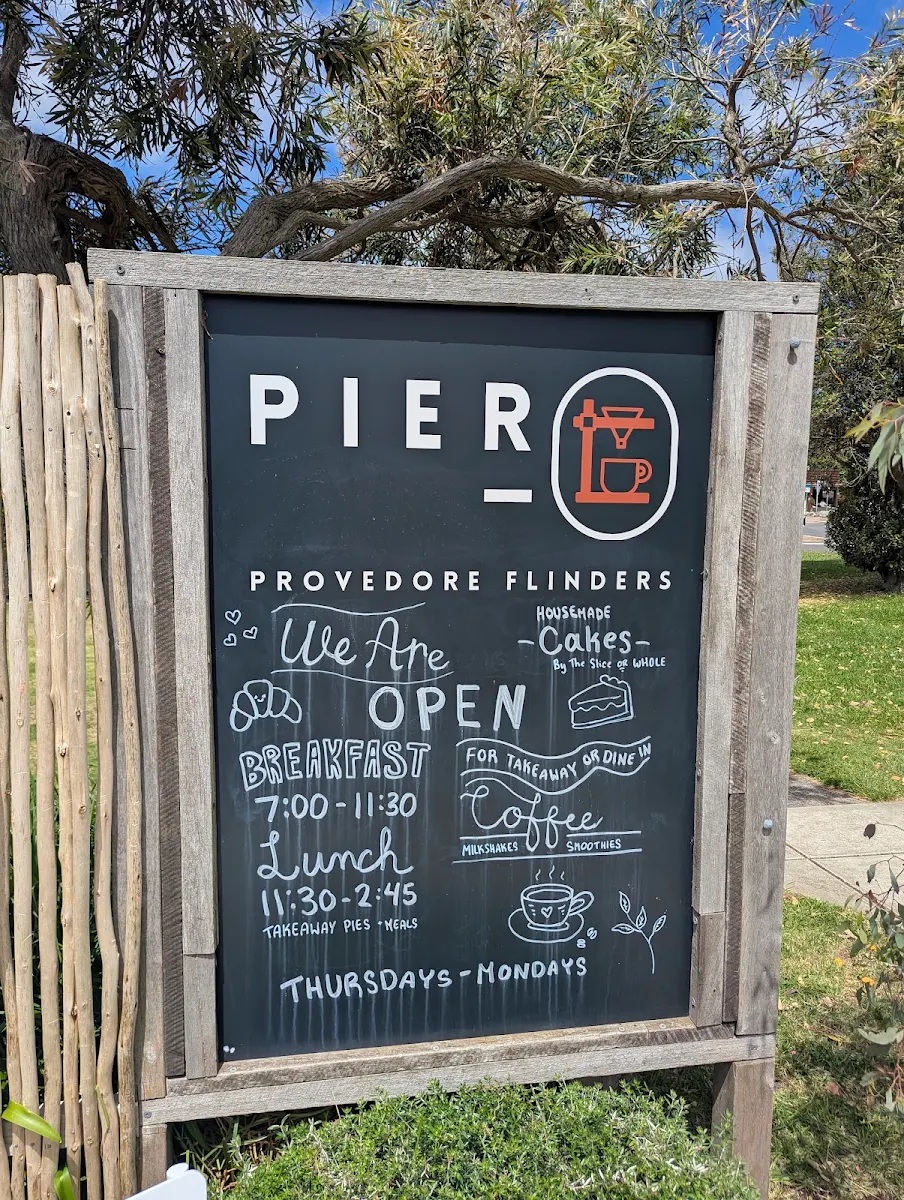 PIER
PROVEDORE FLINDERS
We Are
OPEN
BREAKFAST
7:00-11:30
Lunch
11:30-2:45
TAKEAWAY PIES + MEALS
HOUSEMADE
-Cakes-
By The Slice or WHOLE
FOR TAKEAWAY OR DINE IN
Coffee
MILKSHAKES SMOOTHIES
THURSDAYS - MONDAYS